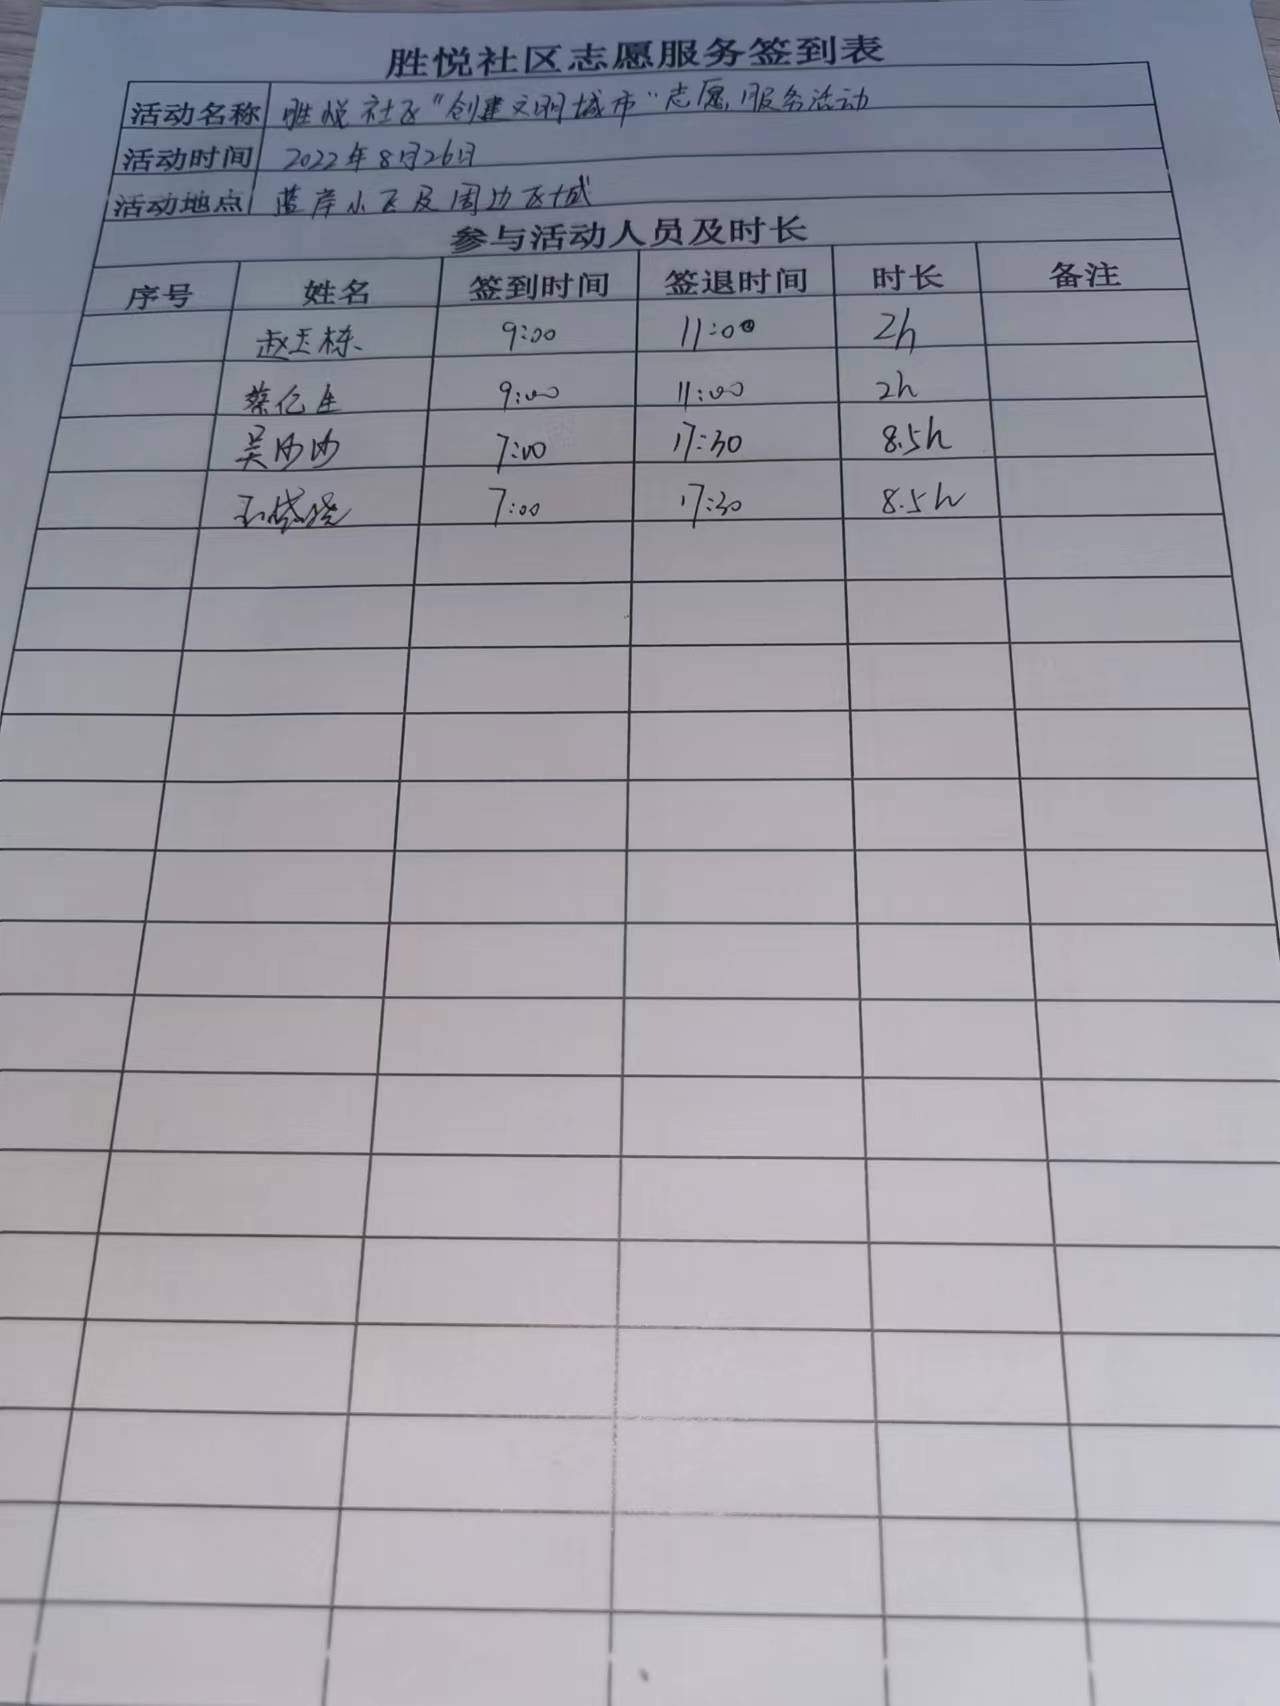 胜悦社区志愿服务签到表
活动名称 胜悦社区“创建文明城市”志愿服务活动
活动时间 2022年8月26日
活动地点 蓝岸小区及周边区域
参与活动人员及时长
序号 姓名 签到时间 签退时间 时长 备注
赵玉栋 9:00 11:00 2h
蔡亿生 9:00 11:00 2h
吴沙沙 7:00 17:30 8.5h
7:00 17:30 8.5h